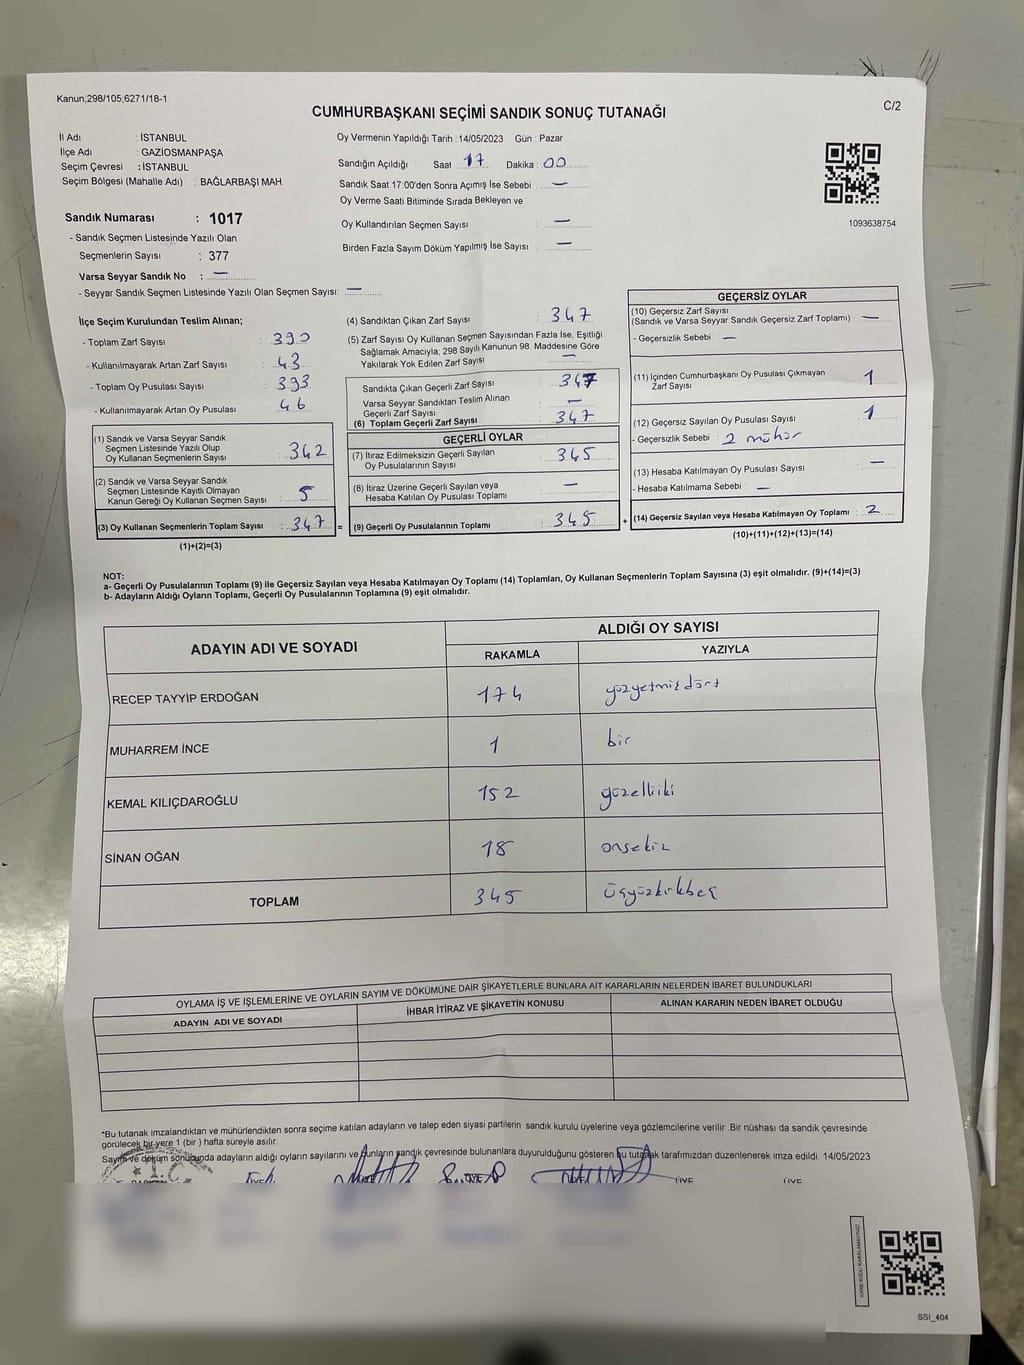 Kanun;298/105;6271/18-1
C/2
CUMHURBAŞKANI SEÇİMİ SANDIK SONUÇ TUTANAĞI
İl Adı : İSTANBUL
İlçe Adı : GAZİOSMANPAŞA
Seçim Çevresi : İSTANBUL
Seçim Bölgesi (Mahalle Adı) : BAĞLARBAŞI MAH.
Oy Vermenin Yapıldığı Tarih : 14/05/2023 Gün : Pazar
Sandığın Açıldığı Saat 17 Dakika : 00
Sandık Saat 17:00'den Sonra Açımış İse Sebebi : —
Oy Verme Saati Bitiminde Sırada Bekleyen ve
Oy Kullandırılan Seçmen Sayısı : —
Birden Fazla Sayım Döküm Yapılmış İse Sayısı : —
1093638754
Sandık Numarası : 1017
- Sandık Seçmen Listesinde Yazılı Olan
Seçmenlerin Sayısı : 377
Varsa Seyyar Sandık No : —
- Seyyar Sandık Seçmen Listesinde Yazılı Olan Seçmen Sayısı: —
İlçe Seçim Kurulundan Teslim Alınan;
- Toplam Zarf Sayısı : 390
- Kullanılmayarak Artan Zarf Sayısı : 43
- Toplam Oy Pusulası Sayısı : 393
- Kullanılmayarak Artan Oy Pusulası : 46
(1) Sandık ve Varsa Seyyar Sandık
Seçmen Listesinde Yazılı Olup
Oy Kullanan Seçmenlerin Sayısı : 342
(2) Sandık ve Varsa Seyyar Sandık
Seçmen Listesinde Kayıtlı Olmayan
Kanun Gereği Oy Kullanan Seçmen Sayısı : 5
(3) Oy Kullanan Seçmenlerin Toplam Sayısı : 347 =
(1)+(2)=(3)
(4) Sandıktan Çıkan Zarf Sayısı : 347
(5) Zarf Sayısı Oy Kullanan Seçmen Sayısından Fazla İse, Eşitliği
Sağlamak Amacıyla; 298 Sayılı Kanunun 98. Maddesine Göre
Yakılarak Yok Edilen Zarf Sayısı : —
Sandıkta Çıkan Geçerli Zarf Sayısı : 347
Varsa Seyyar Sandıktan Teslim Alınan
Geçerli Zarf Sayısı : —
(6) Toplam Geçerli Zarf Sayısı : 347
GEÇERLİ OYLAR
(7) İtiraz Edilmeksizin Geçerli Sayılan
Oy Pusulalarının Sayısı : 345
(8) İtiraz Üzerine Geçerli Sayılan veya
Hesaba Katılan Oy Pusulası Toplamı : —
(9) Geçerli Oy Pusulalarının Toplamı : 345 +
GEÇERSİZ OYLAR
(10) Geçersiz Zarf Sayısı
(Sandık ve Varsa Seyyar Sandık Geçersiz Zarf Toplamı) : —
- Geçersizlik Sebebi : —
(11) İçinden Cumhurbaşkanı Oy Pusulası Çıkmayan
Zarf Sayısı : 1
(12) Geçersiz Sayılan Oy Pusulası Sayısı : 1
- Geçersizlik Sebebi : 2 mühür
(13) Hesaba Katılmayan Oy Pusulası Sayısı : —
- Hesaba Katılmama Sebebi : —
(14) Geçersiz Sayılan veya Hesaba Katılmayan Oy Toplamı : 2
(10)+(11)+(12)+(13)=(14)
NOT:
a- Geçerli Oy Pusulalarının Toplamı (9) ile Geçersiz Sayılan veya Hesaba Katılmayan Oy Toplamı (14) Toplamları, Oy Kullanan Seçmenlerin Toplam Sayısına (3) eşit olmalıdır. (9)+(14)=(3)
b- Adayların Aldığı Oyların Toplamı, Geçerli Oy Pusulalarının Toplamına (9) eşit olmalıdır.
ADAYIN ADI VE SOYADI
ALDIĞI OY SAYISI
RAKAMLA YAZIYLA
RECEP TAYYİP ERDOĞAN 174 yüzyetmişdört
MUHARREM İNCE 1 bir
KEMAL KILIÇDAROĞLU 152 yüzelliiki
SİNAN OĞAN 18 onsekiz
TOPLAM 345 üçyüzkırkbeş
OYLAMA İŞ VE İŞLEMLERİNE VE OYLARIN SAYIM VE DÖKÜMÜNE DAİR ŞİKAYETLERLE BUNLARA AİT KARARLARIN NELERDEN İBARET BULUNDUKLARI
ADAYIN ADI VE SOYADI İHBAR İTİRAZ VE ŞİKAYETİN KONUSU ALINAN KARARIN NEDEN İBARET OLDUĞU
*Bu tutanak imzalandıktan ve mühürlendikten sonra seçime katılan adayların ve talep eden siyasi partilerin sandık kurulu üyelerine veya gözlemcilerine verilir .Bir nüshası da sandık çevresinde
görülecek bir yere 1 (bir ) hafta süreyle asılır.
Sayım ve döküm sonucunda adayların aldığı oyların sayılarını ve bunların sandık çevresinde bulunanlara duyurulduğunu gösteren bu tutanak tarafımızdan düzenlenerek imza edildi. 14/05/2023
T.C.
ÜYE ÜYE
SSI_404